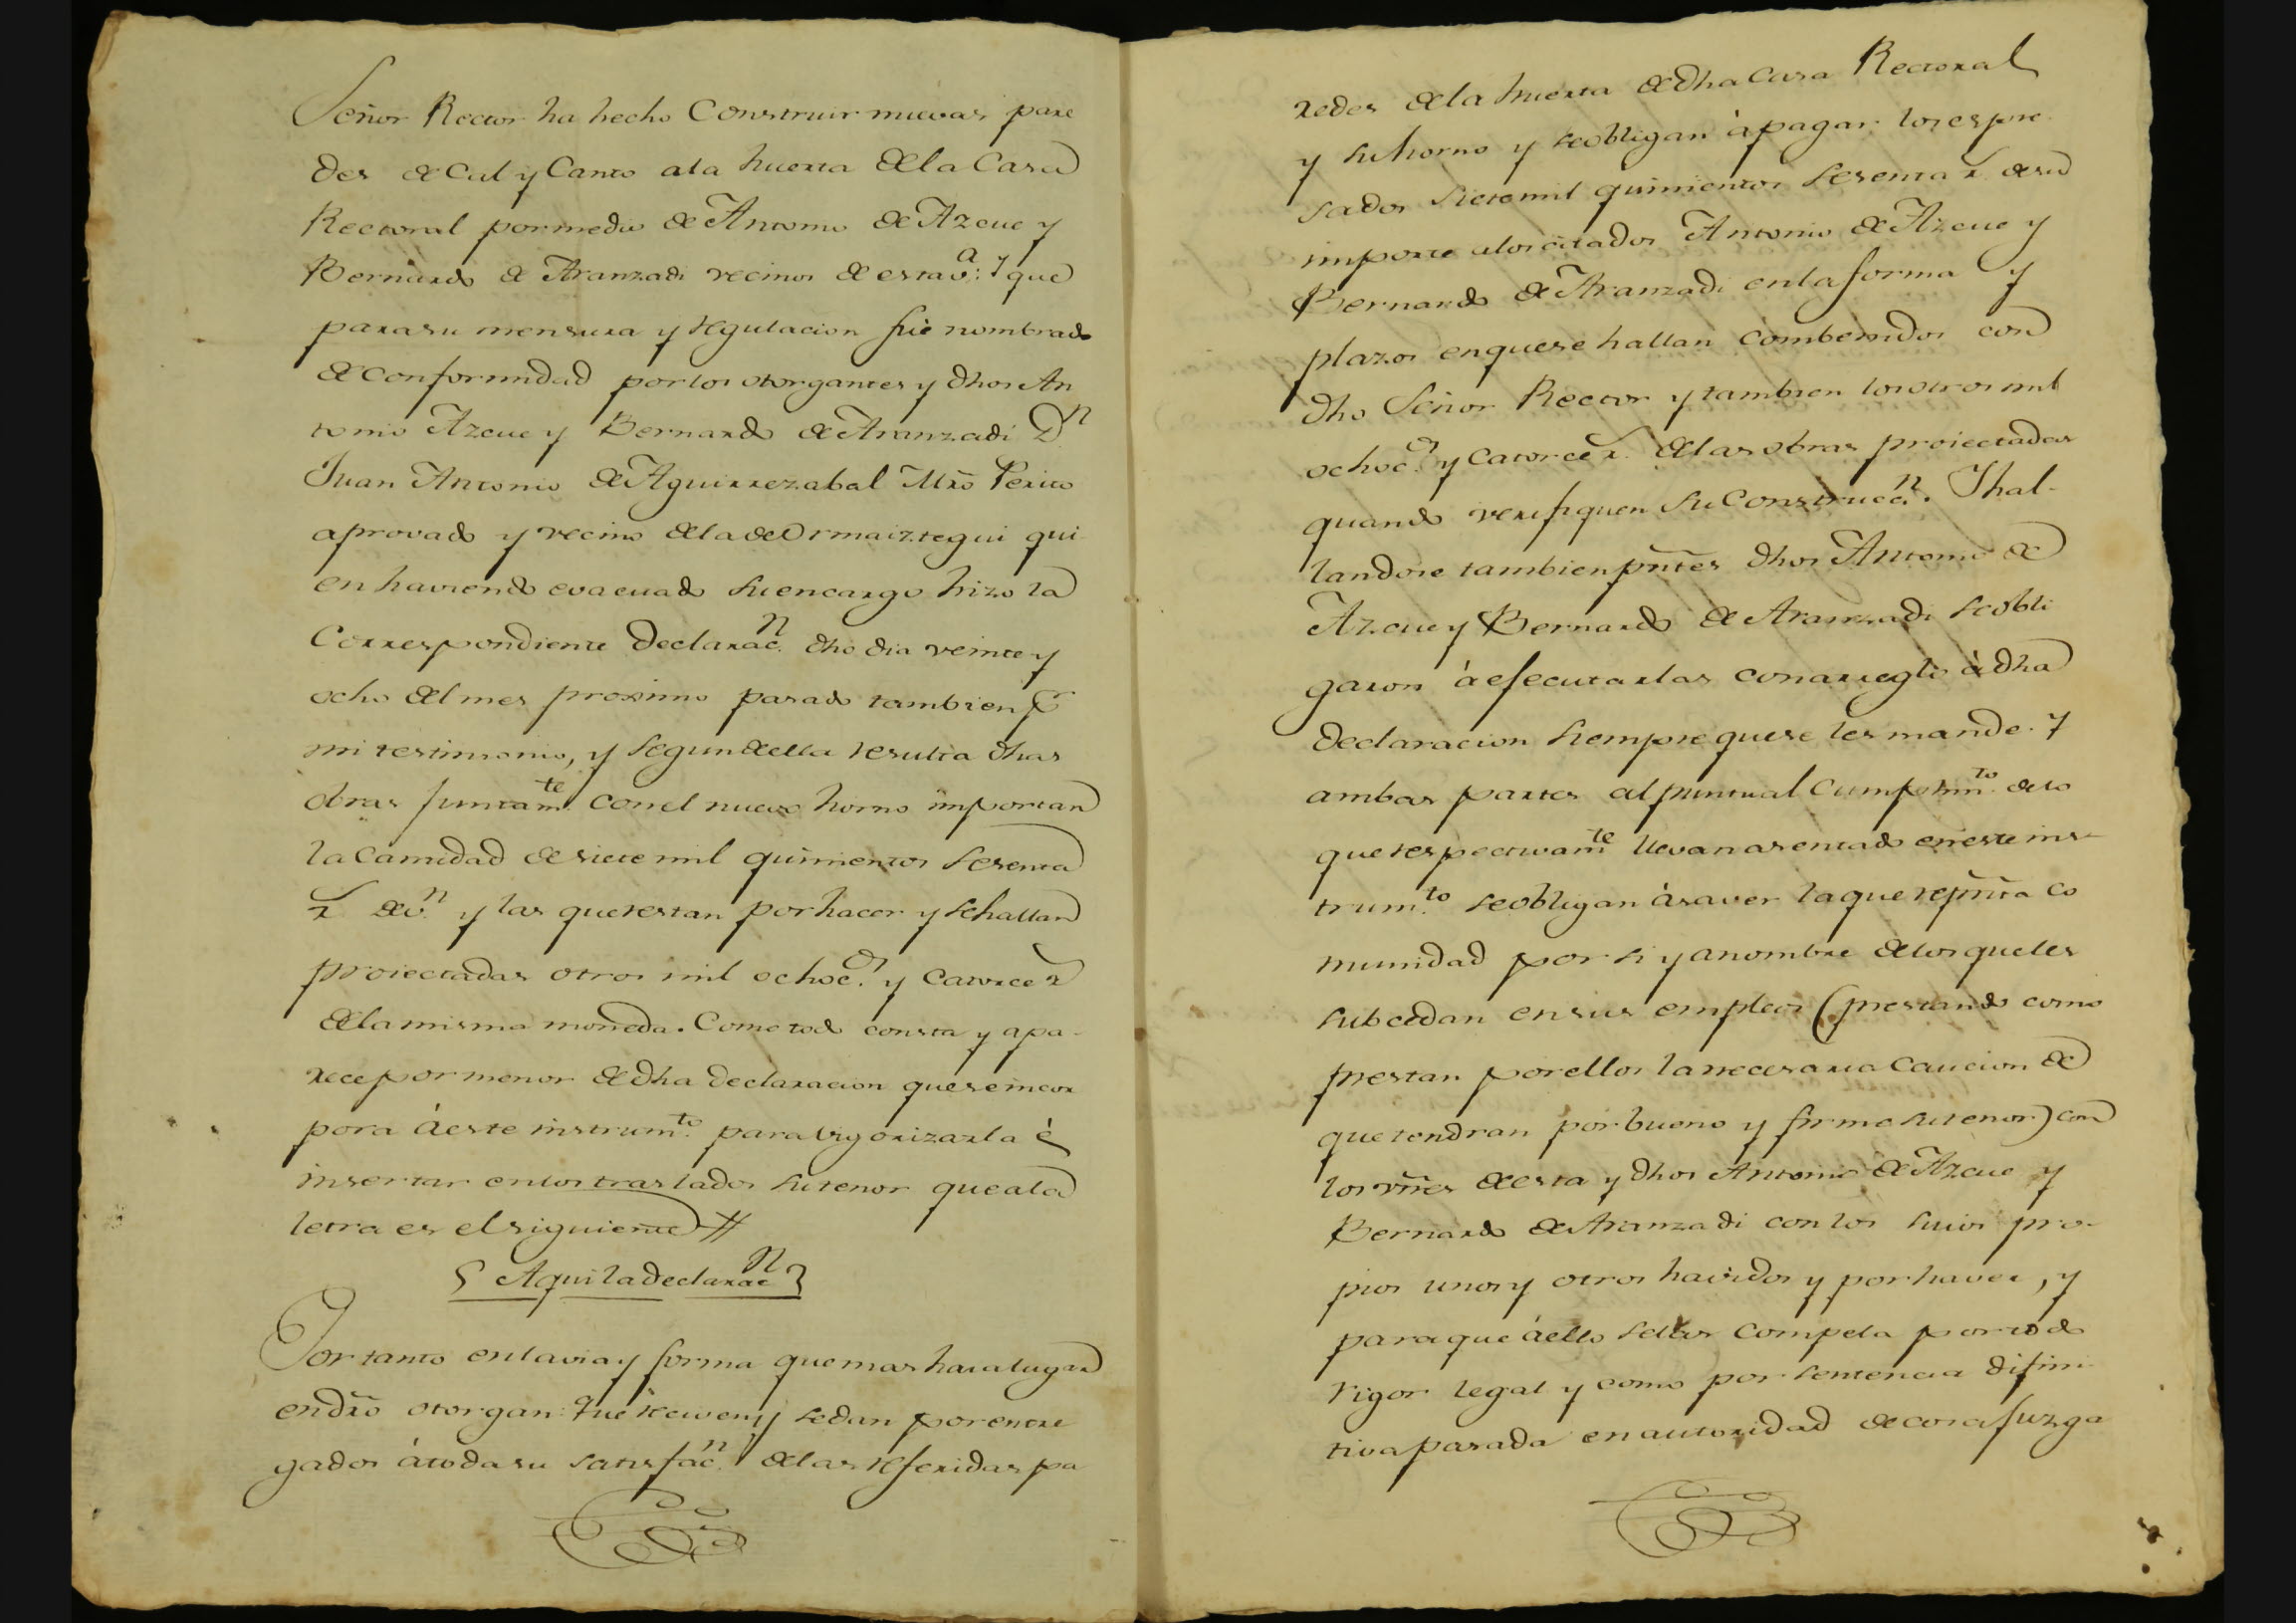 Señor Rector ha hecho Construir nuevas pare
des de Cal y Canto ala huerta dela Casa
Rectoral por medio de Antonio de Azcue y
Bernardo de Aranzadi vecinos de esta v.ª y que
para su mensura y regulacion fué nombrado
de conformidad por los otorgantes y dhos An
tonio Azcue y Bernardo de Aranzadi D.n
Juan Antonio de Aguirrezabal Mrõ Perito
aprovado y vecino dela de Ormaiztegui qui
en haviendo evacuado su encargo hizo la
Correspondiente Declarac.n dho dia veinte y
ocho del mes proximo pasado tambien p.r
mi testimonio, y segun de ella resulta dhas
obras juntam.te con el nuevo horno importan
la Cantidad de siete mil quinientos sesenta
r.s de v.n y las que restan por hacer y se hallan
proiectadas otros mil ochoc.s y Catorce r.s
dela misma moneda. Como todo consta y apa-
rece por menor de dha declaracion que se incor
pora á este instrum.to para vigorizarla é
insertar en los traslados su tenor que ala
letra es el siguiente #
Aqui la declarac.n
Por tanto en la via y forma que mas haia lugar
en dr̃o otorgan: Que reciven y se dan por entre
gados á toda su satisfac.n de las referidas pa
redes de la huerta de dha Casa Rectoral
y su horno y se obligan á pagar los espre
sados siete mil quinientos sesenta r.s de su
importe alos citados Antonio de Azcue y
Bernardo de Aranzadi en la forma y
plazos en que se hallan combenidos con
dho Señor Rector y tambien los otros mil
ochoc.s y Catorce r.s de las obras proiectadas
quando verifiquen su Construcc.n. Y hal-
landose tambien pñtes dhos Antonio de
Azcue y Bernardo de Aranzadi se obli
garon á efecutarlas con arreglo á dha
Declaracion siempre que se les mande. Y
ambas partes al puntual Cumplim.to de lo
que respectivam.te llevan asentado en este ins-
trum.to se obligan á saver la que repñta Co
munidad por si y anombre delos que les
subcedan en sus empleos (prestando como
prestan por ellos la necesaria Caucion de
que tendran por bueno y firme su tenor) con
los vñes de esta y dhos Antonio de Azcue y
Bernardo de Aranzadi con los suios pro-
pios unos y otros havidos y por haver, y
para que á ello se les compela por todo
rigor legal y como por sentencia difini
tiva pasada en autoridad de cosa juzga